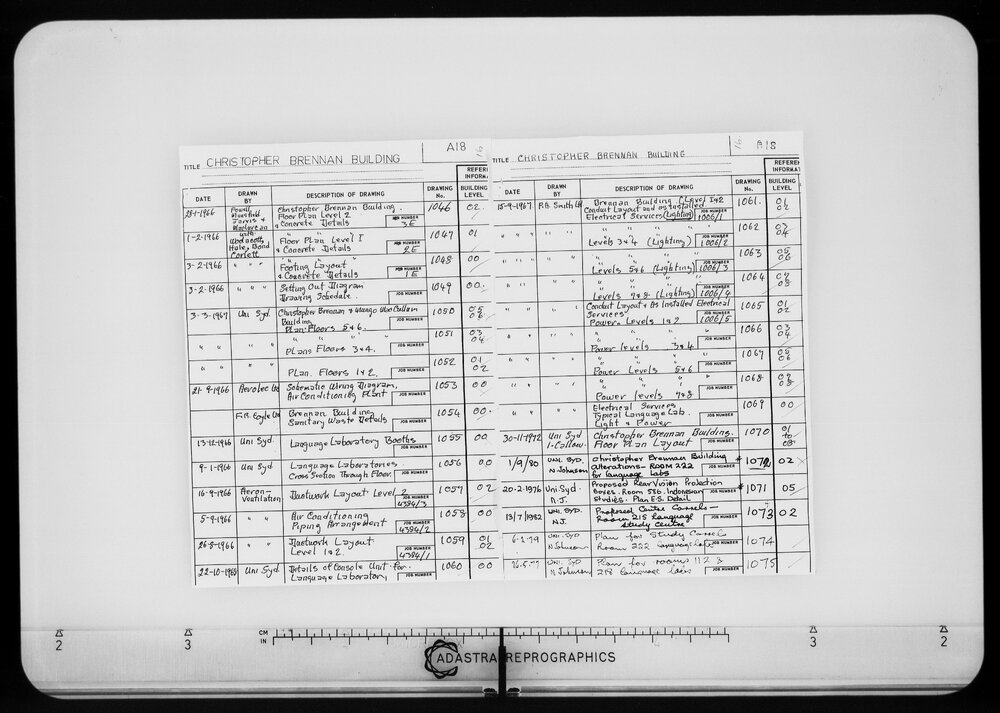 TITLE CHRISTOPHER BRENNAN BUILDING A18 16
DATE DRAWN BY DESCRIPTION OF DRAWING DRAWING No. REFERE INFORMA BUILDING LEVEL
-1966 Powell, Mansfield Jarvis & Maclurcan Christopher Brennan Building. 1046 02.
Floor Plan Level 2
& Concrete Details JOB NUMBER 3E
1-2-1966 with Woolacott, Hale, Bond Corlett " " " 1047 01
Floor Plan Level 1
& Concrete Details JOB NUMBER 2E
3-2-1966 " " " " " 1048 00
Footing Layout
& Concrete Details JOB NUMBER 1E
3-2-1966 " " " Setting Out Diagram 1049 00
Drawing Schedule. JOB NUMBER
3-3-1967 Uni Syd. Christopher Brennan & Mungo MacCallum 1050 05 06
Building
Plan. Floors 5 & 6. JOB NUMBER
" " " " " " " " 1051 03 04
Plans Floors 3 & 4. JOB NUMBER
" " " " " 1052 01 02
Plan. Floors 1 & 2. JOB NUMBER
21-9-1966 Aerotec Ltd Schematic Wiring Diagram, 1053 00
Air Conditioning Plant JOB NUMBER
F.R. Coyle Ltd Brennan Building 1054 00
Sanitary Waste Details JOB NUMBER
13-12-1966 Uni Syd. Language Laboratory Booths 1055 00
JOB NUMBER
9-1-1968 Uni Syd Language Laboratories. 1056 00
Cross Section Through Floor. JOB NUMBER
16-9-1966 Aeron-Ventilation Ductwork Layout Level 2 1057 02
JOB NUMBER 4384/3
5-9-1966 " " Air Conditioning 1058 00
Piping Arrangement JOB NUMBER 4384/2
26-8-1966 " " Ductwork Layout 1059 01 02
Level 1 & 2 JOB NUMBER 4384/1
22-10-1968 Uni Syd Details of Console Unit for 1060 00
Language Laboratory JOB NUMBER
TITLE CHRISTOPHER BRENNAN BUILDING 16 A18
DATE DRAWN BY DESCRIPTION OF DRAWING DRAWING No. REFERE INFORMA BUILDING LEVEL
15-9-1967 R.B. Smith Ltd Brennan Building (Level 1&2 1061. 01 02
Conduit Layout and as Installed
Electrical Services (Lighting) JOB NUMBER 1006/1
" " " " " " " 1062 03 04
Levels 3 & 4 (Lighting) JOB NUMBER 1006/2
" " " " " " " 1063 05 06
Levels 5 & 6 (Lighting) JOB NUMBER 1006/3
" " " " " " " 1064 07 08
Levels 7 & 8 (Lighting) JOB NUMBER 1006/4
" " " Conduit Layout & As Installed Electrical 1065 01 02
Services
Power. Levels 1 & 2 JOB NUMBER 1006/5
" " " " " " " 1066 03 04
Power levels 3 & 4 JOB NUMBER
" " " " " " " 1067 05 06
Power Levels 5 & 6 JOB NUMBER
" " " " " " " 1068 07 08
Power levels 7 & 8 JOB NUMBER
" " " Electrical Services 1069 00
Typical Language Lab.
Light & Power JOB NUMBER
30-11-1972 Uni Syd Christopher Brennan Building. 1070 01 to 08
Floor Plan Layout JOB NUMBER
1/9/80 UNI. SYD. N. Johnson Christopher Brennan Building * 1072 02
Alterations - ROOM 222
for language Labs JOB NUMBER
20-2-1976 Uni Syd. N.J. Proposed Rear Vision Projection * 1071 05
Boxes. Room 586. Indonesian
Studies. Plan E.S. Detail JOB NUMBER
13/7/1982 UNI. SYD. N.J. Proposed Centre Carrels - 1073 02
Room 215 language
Study Centre JOB NUMBER
6-2-79 UNI. SYD N Johnson Plan for Study Carrel 1074
Room 222 language labs JOB NUMBER
5.77 UNI. SYD N Johnson Plan for rooms 1 2 3 1075
218 language labs JOB NUMBER
2 3 CM IN 3 2
ADASTRA REPROGRAPHICS